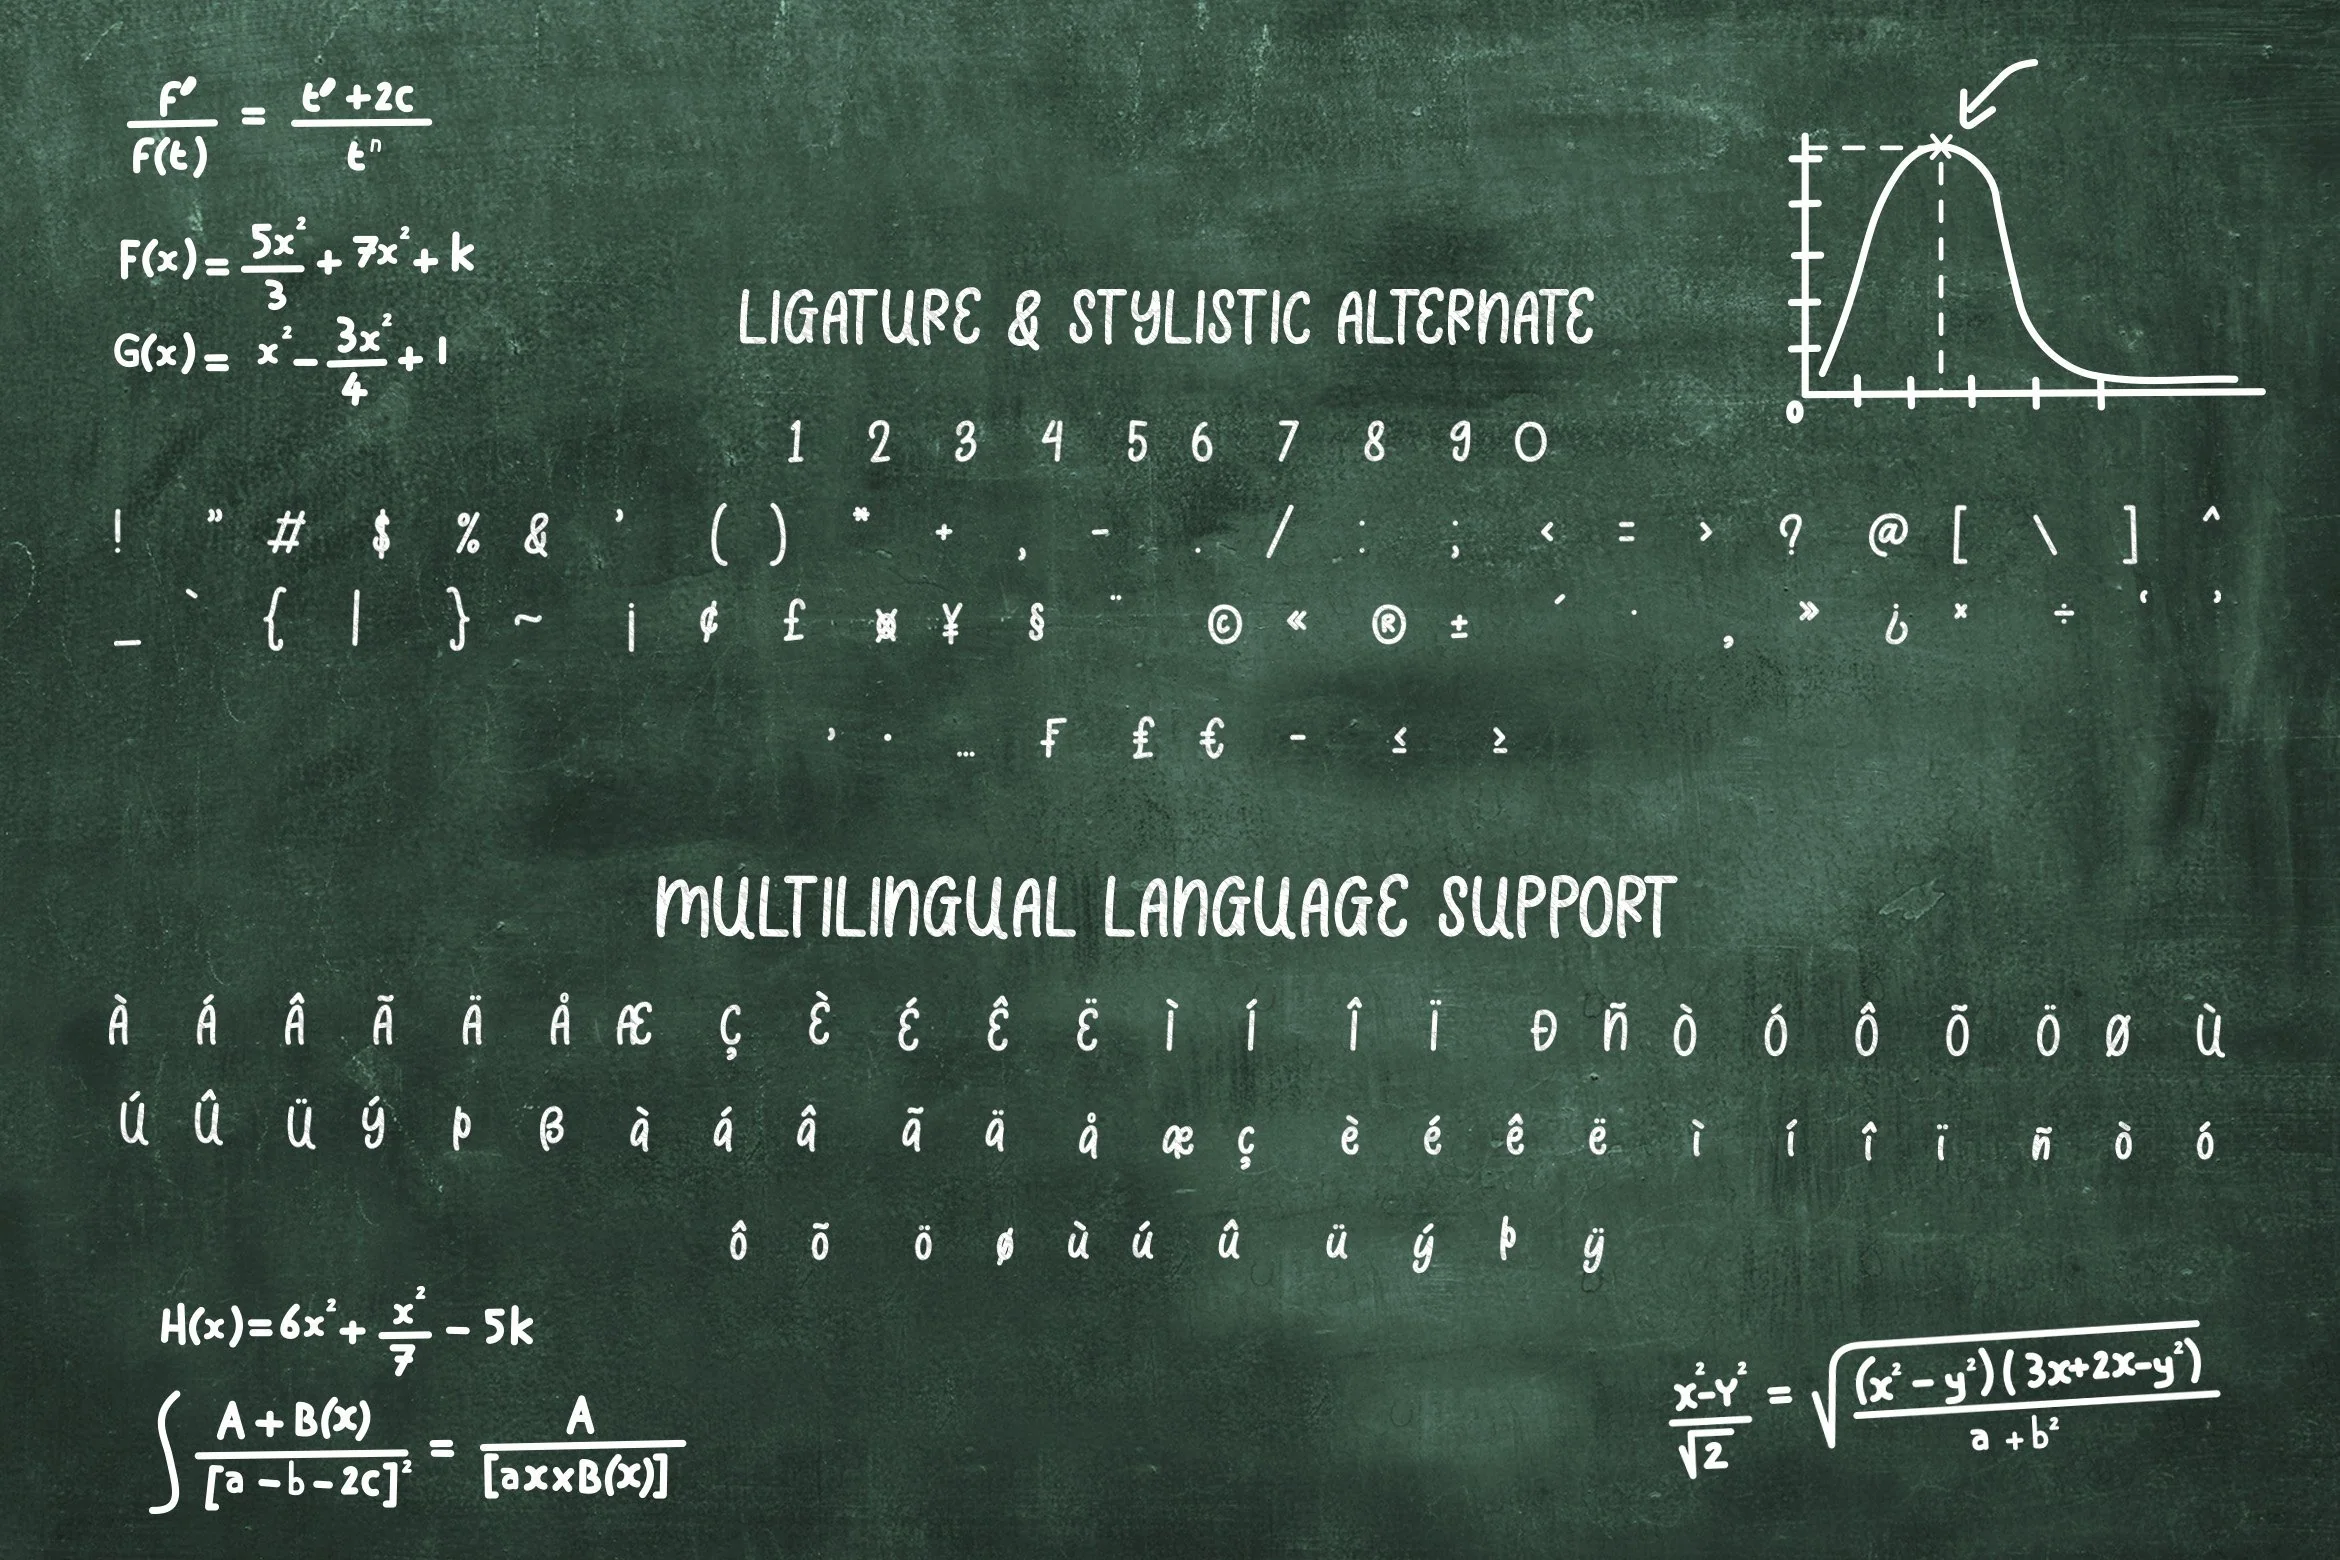 F' / F(t) = t' + 2c / tⁿ
F(x) = 5x² / 3 + 7x² + k
G(x) = x² - 3x² / 4 + 1
LIGATURE & STYLISTIC ALTERNATE
0
1 2 3 4 5 6 7 8 9 0
! " # $ % & ' ( ) * + , - . / : ; < = > ? @ [ \ ] ^
_ ` { | } ~ ¡ ¢ £ ¤ ¥ § ¨ © « ® ± ´ · ¸ » ¿ × ÷ ‘ ’
‚ • … ₣ ₤ € − ≤ ≥
MULTILINGUAL LANGUAGE SUPPORT
À Á Â Ã Ä Å Æ Ç È É Ê Ë Ì Í Î Ï Ð Ñ Ò Ó Ô Õ Ö Ø Ù
Ú Û Ü Ý Þ ß à á â ã ä å æ ç è é ê ë ì í î ï ñ ò ó
ô õ ö ø ù ú û ü ý þ ÿ
H(x) = 6x² + x² / 7 - 5k
∫ A + B(x) / [a - b - 2c]² = A / [axxB(x)]
x² - Y² / √2 = √(x² - y²)(3x+2x-y²) / a + b²